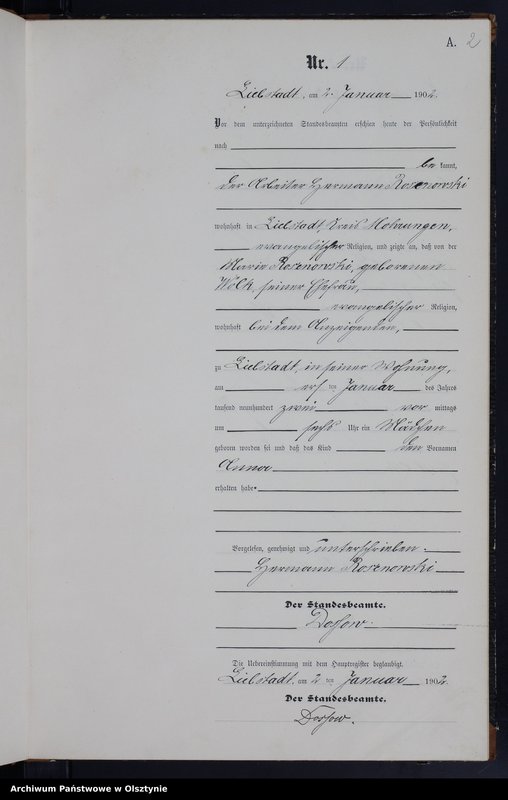 A. 2
Nr. 1
Liebstadt, am 2. Januar 1902.
Vor dem unterzeichneten Standesbeamten erschien heute der Persönlichkeit
nach
be kannt,
der Arbeiter Hermann Rosenowski
wohnhaft in Liebstadt, Kreis Mohrungen,
evangelischer Religion, und zeigte an, daß von der
Marie Rosenowski, geborenen
Wölk, seiner Ehefrau,
evangelischer Religion,
wohnhaft bei dem Anzeigenden,
zu Liebstadt, in seiner Wohnung,
am ersten Januar des Jahres
tausend neunhundert zwei vor mittags
um sechs Uhr ein Mädchen
geboren worden sei und daß das Kind den Vornamen
Anna
erhalten habe.
Vorgelesen, genehmigt und unterschrieben.
Hermann Rosenowski
Der Standesbeamte.
Die Uebereinstimmung mit dem Hauptregister beglaubigt.
Liebstadt, am 2 ten Januar 1902.
Der Standesbeamte.
Archiwum Państwowe w Olsztynie